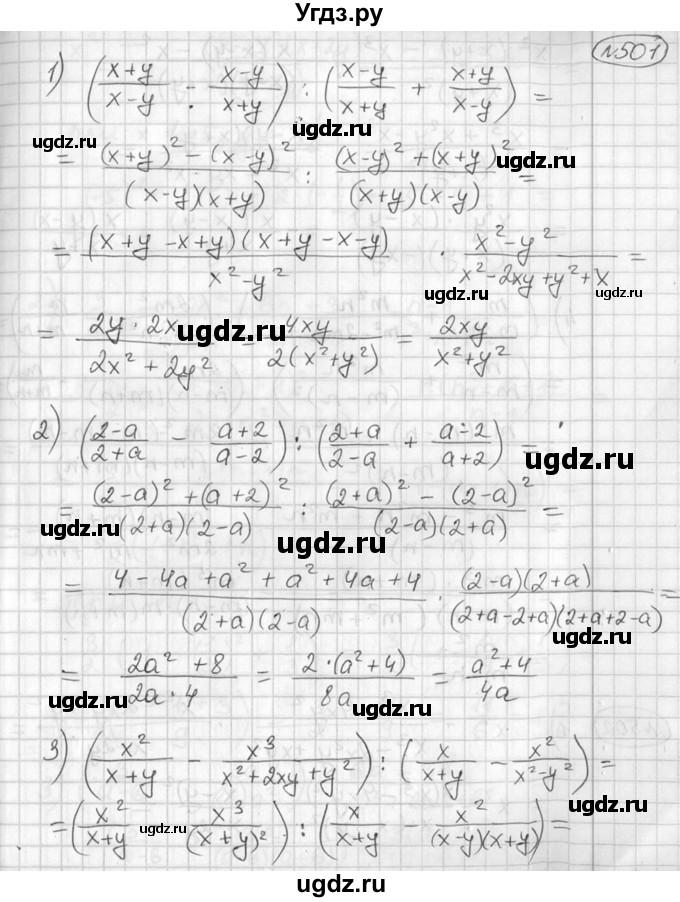 Угдз.ру
№501
1) ((x+y)/(x-y) - (x-y)/(x+y)) : ((x-y)/(x+y) + (x+y)/(x-y)) =
ugdz.ru ugdz.ru ugdz.ru
= ((x+y)² - (x-y)²)/((x-y)(x+y)) : ((x-y)² + (x+y)²)/((x+y)(x-y)) =
= ((x+y-x+y)(x+y-x-y))/(x²-y²) · (x²-y²)/(x²-2xy+y²+x =
ugdz.ru
= (2y·2x)/(2x²+2y²) = 4xy/(2(x²+y²)) = 2xy/(x²+y²)
ugdz.ru
2) ((2-a)/(2+a) - (a+2)/(a-2)) : ((2+a)/(2-a) + (a-2)/(a+2)) =
ugdz.ru
= ((2-a)² + (a+2)²)/((2+a)(2-a)) : ((2+a)² - (2-a)²)/((2-a)(2+a)) =
ugdz.ru ugdz.ru
= (4-4a+a²+a²+4a+4)/((2+a)(2-a)) · ((2-a)(2+a))/((2+a-2+a)(2+a+2-a)) =
ugdz.ru
= (2a²+8)/(2a·4) = (2·(a²+4))/(8a) = (a²+4)/(4a)
ugdz.ru ugdz.ru
3) (x²/(x+y) - x³/(x²+2xy+y²)) : (x/(x+y) - x²/(x²-y²)) =
ugdz.ru
= (x²/(x+y) x³/(x+y)²) : (x/(x+y) - x²/((x-y)(x+y))) =
ugdz.ru ugdz.ru
ugdz.ru